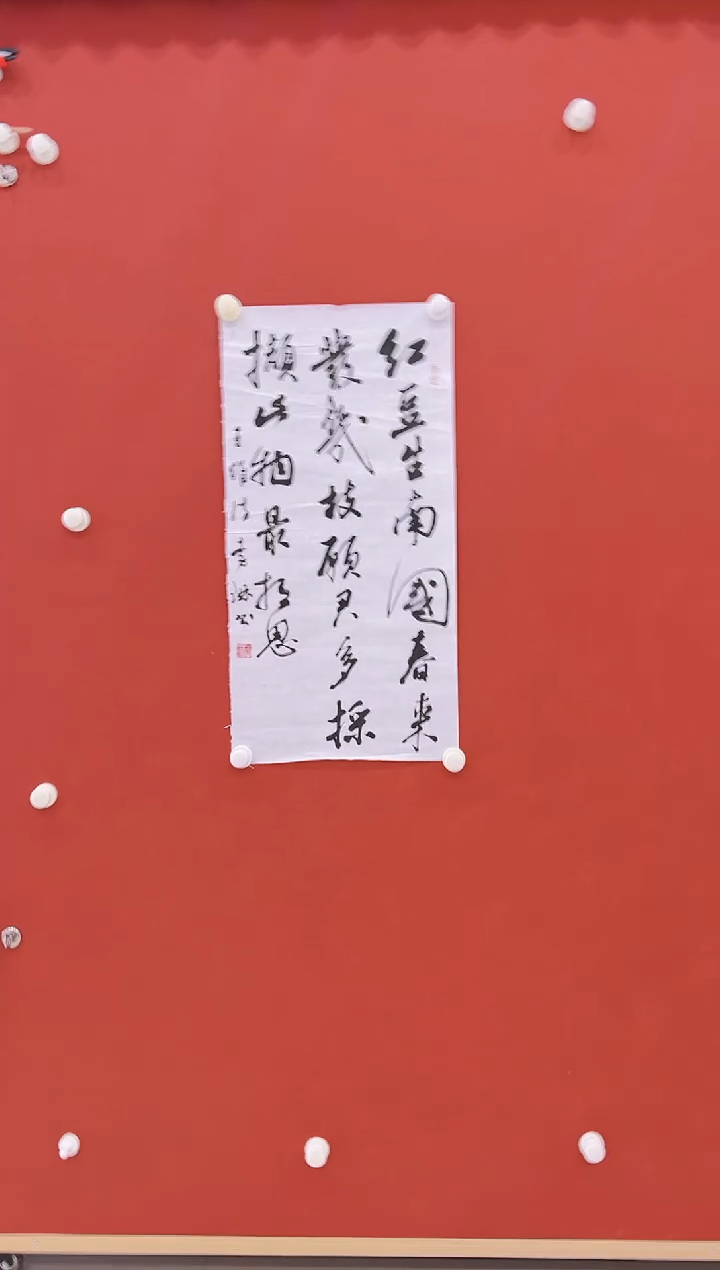 红豆生南國春来
發幾枝願君多採
擷此物最相思
王維诗